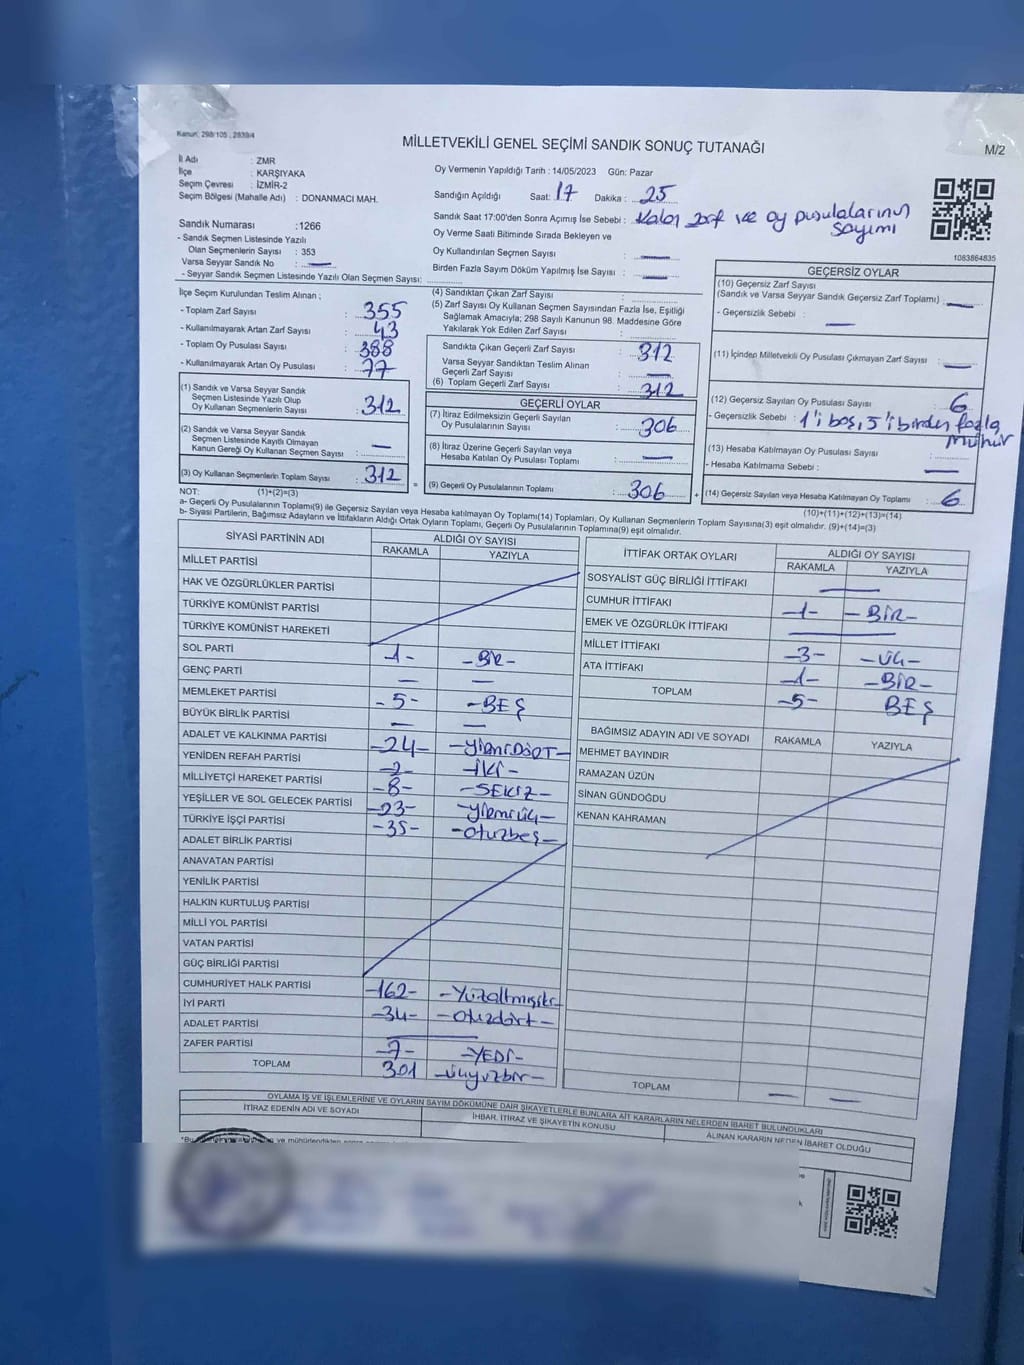 Kanun: 298/105 , 2839/4
MİLLETVEKİLİ GENEL SEÇİMİ SANDIK SONUÇ TUTANAĞI
M/2
İl Adı : ZMR
İlçe : KARŞIYAKA
Seçim Çevresi : İZMİR-2
Seçim Bölgesi (Mahalle Adı) : DONANMACI MAH.
Oy Vermenin Yapıldığı Tarih : 14/05/2023 Gün: Pazar
Sandığın Açıldığı Saat: 17 Dakika : 25
Sandık Saat 17:00'den Sonra Açımış İse Sebebi : Kalan zarf ve oy pusulalarının sayımı
Oy Verme Saati Bitiminde Sırada Bekleyen ve
Oy Kullandırılan Seçmen Sayısı : —
Birden Fazla Sayım Döküm Yapılmış İse Sayısı : —
1083864835
Sandık Numarası : 1266
- Sandık Seçmen Listesinde Yazılı
Olan Seçmenlerin Sayısı : 353
Varsa Seyyar Sandık No : —
- Seyyar Sandık Seçmen Listesinde Yazılı Olan Seçmen Sayısı:
İlçe Seçim Kurulundan Teslim Alınan ;
- Toplam Zarf Sayısı : 355
- Kullanılmayarak Artan Zarf Sayısı : 43
- Toplam Oy Pusulası Sayısı : 388
- Kullanılmayarak Artan Oy Pusulası : 77
(1) Sandık ve Varsa Seyyar Sandık
Seçmen Listesinde Yazılı Olup
Oy Kullanan Seçmenlerin Sayısı : 312
(2) Sandık ve Varsa Seyyar Sandık
Seçmen Listesinde Kayıtlı Olmayan
Kanun Gereği Oy Kullanan Seçmen Sayısı : —
(3) Oy Kullanan Seçmenlerin Toplam Sayısı : 312
(1)+(2)=(3)
(4) Sandıktan Çıkan Zarf Sayısı :
(5) Zarf Sayısı Oy Kullanan Seçmen Sayısından Fazla İse, Eşitliği
Sağlamak Amacıyla; 298 Sayılı Kanunun 98. Maddesine Göre
Yakılarak Yok Edilen Zarf Sayısı :
Sandıkta Çıkan Geçerli Zarf Sayısı : 312
Varsa Seyyar Sandıktan Teslim Alınan
Geçerli Zarf Sayısı : —
(6) Toplam Geçerli Zarf Sayısı : 312
GEÇERLİ OYLAR
(7) İtiraz Edilmeksizin Geçerli Sayılan
Oy Pusulalarının Sayısı : 306
(8) İtiraz Üzerine Geçerli Sayılan veya
Hesaba Katılan Oy Pusulası Toplamı : —
= (9) Geçerli Oy Pusulalarının Toplamı : 306 +
GEÇERSİZ OYLAR
(10) Geçersiz Zarf Sayısı
(Sandık ve Varsa Seyyar Sandık Geçersiz Zarf Toplamı) : —
- Geçersizlik Sebebi : —
(11) İçinden Milletvekili Oy Pusulası Çıkmayan Zarf Sayısı : —
(12) Geçersiz Sayılan Oy Pusulası Sayısı : 6
- Geçersizlik Sebebi : 1'i boş, 5'i birden fazla mühür
(13) Hesaba Katılmayan Oy Pusulası Sayısı :
- Hesaba Katılmama Sebebi : —
(14) Geçersiz Sayılan veya Hesaba Katılmayan Oy Toplamı : 6
(10)+(11)+(12)+(13)=(14)
NOT:
a- Geçerli Oy Pusulalarının Toplamı(9) ile Geçersiz Sayılan veya Hesaba Katılmayan Oy Toplamı(14) Toplamları, Oy Kullanan Seçmenlerin Toplam Sayısına(3) eşit olmalıdır. (9)+(14)=(3)
b- Siyasi Partilerin, Bağımsız Adayların ve İttifakların Aldığı Ortak Oyların Toplamı, Geçerli Oy Pusulalarının Toplamına(9) eşit olmalıdır.
SİYASİ PARTİNİN ADI ALDIĞI OY SAYISI
RAKAMLA YAZIYLA
MİLLET PARTİSİ
HAK VE ÖZGÜRLÜKLER PARTİSİ
TÜRKİYE KOMÜNİST PARTİSİ
TÜRKİYE KOMÜNİST HAREKETİ
SOL PARTİ -1- -BİR-
GENÇ PARTİ — —
MEMLEKET PARTİSİ -5- -BEŞ
BÜYÜK BİRLİK PARTİSİ — —
ADALET VE KALKINMA PARTİSİ -24- -YİRMİDÖRT-
YENİDEN REFAH PARTİSİ -2- -İKİ-
MİLLİYETÇİ HAREKET PARTİSİ -8- -SEKİZ-
YEŞİLLER VE SOL GELECEK PARTİSİ -23- -yirmiüç-
TÜRKİYE İŞÇİ PARTİSİ -35- -otuzbeş-
ADALET BİRLİK PARTİSİ
ANAVATAN PARTİSİ
YENİLİK PARTİSİ
HALKIN KURTULUŞ PARTİSİ
MİLLİ YOL PARTİSİ
VATAN PARTİSİ
GÜÇ BİRLİĞİ PARTİSİ
CUMHURİYET HALK PARTİSİ -162- -Yüzaltmışiki-
İYİ PARTİ -34- -otuzdört-
ADALET PARTİSİ —
ZAFER PARTİSİ -7- -YEDİ-
TOPLAM 301 -üçyüzbir-
İTTİFAK ORTAK OYLARI ALDIĞI OY SAYISI
RAKAMLA YAZIYLA
SOSYALİST GÜÇ BİRLİĞİ İTTİFAKI —
CUMHUR İTTİFAKI -1- -BİR-
EMEK VE ÖZGÜRLÜK İTTİFAKI —
MİLLET İTTİFAKI -3- -ÜÇ-
ATA İTTİFAKI -1- -BİR-
TOPLAM -5- BEŞ
BAĞIMSIZ ADAYIN ADI VE SOYADI RAKAMLA YAZIYLA
MEHMET BAYINDIR
RAMAZAN ÜZÜN
SİNAN GÜNDOĞDU
KENAN KAHRAMAN
TOPLAM — —
OYLAMA İŞ VE İŞLEMLERİNE VE OYLARIN SAYIM DÖKÜMÜNE DAİR ŞİKAYETLERLE BUNLARA AİT KARARLARIN NELERDEN İBARET BULUNDUKLARI
İTİRAZ EDENİN ADI VE SOYADI İHBAR, İTİRAZ VE ŞİKAYETİN KONUSU ALINAN KARARIN NEDEN İBARET OLDUĞU